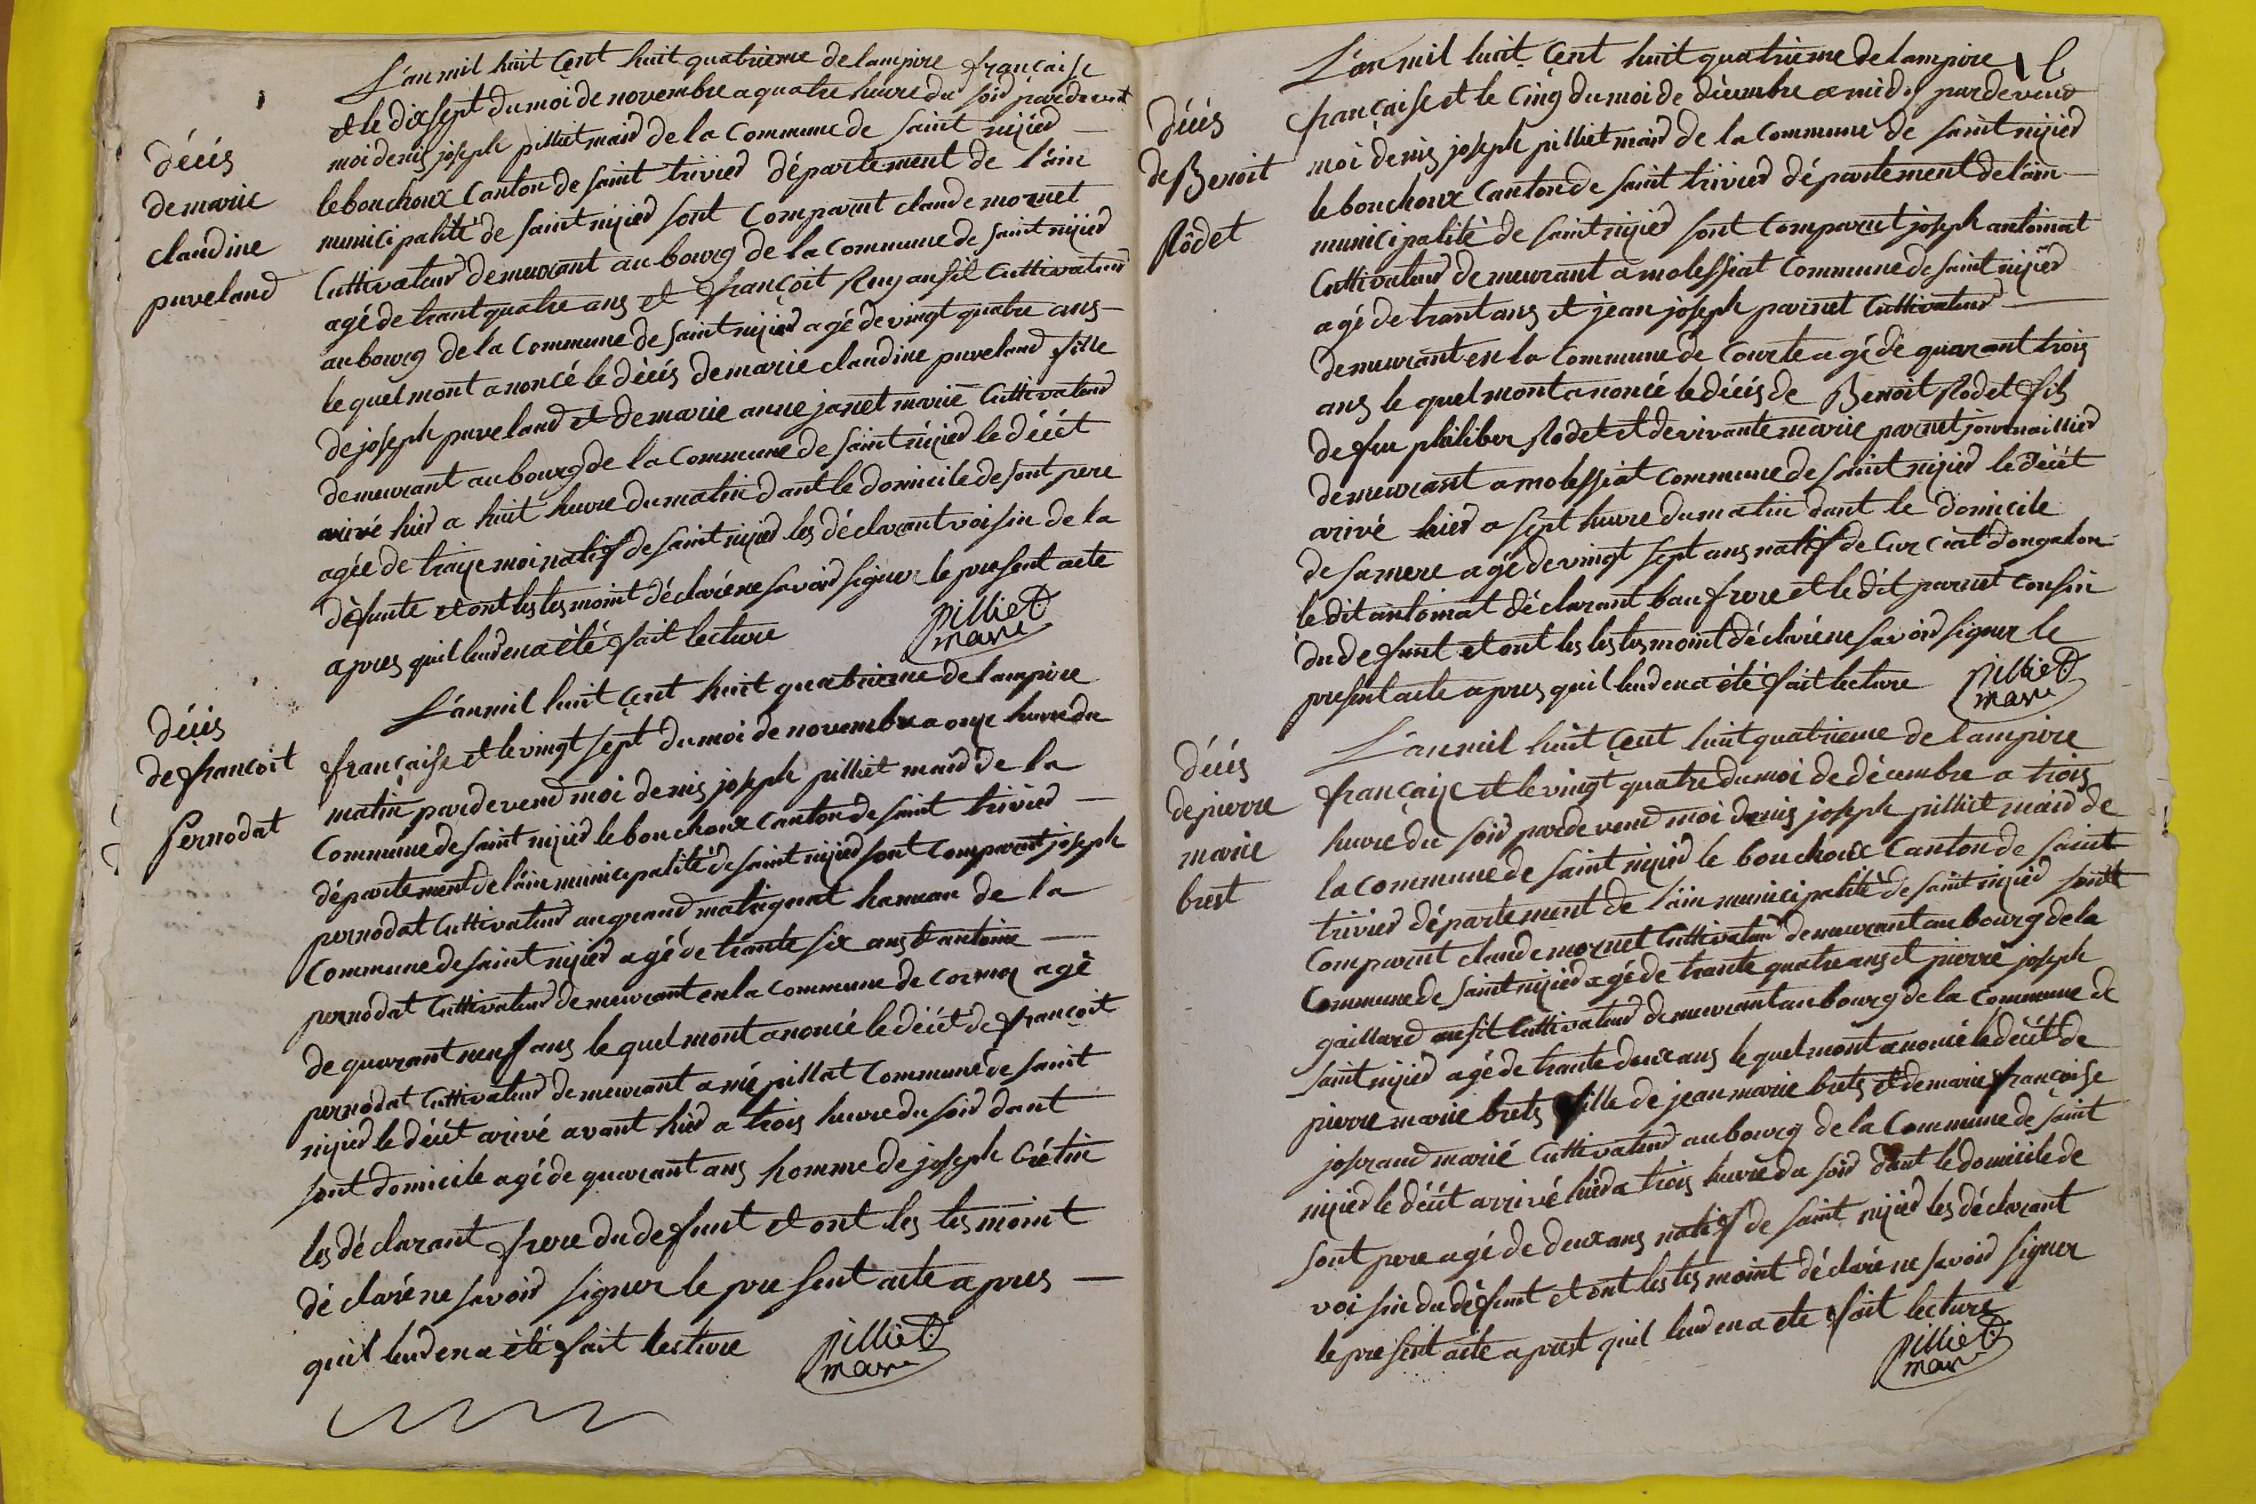 L'an mil huit cent huit quatrieme de lampire française
et le dix sept du moi de novembre a quatre heure du soir pardevent
moi denis joseph pilliet mair de la commune de saint nizier
décés
de marie
claudine
puveland
le bouchoux canton de saint trivier département de l'ain
municipalité de saint nizier sont comparut claude mornet
cultivateur demeurant au bourg de la commune de saint nizier
agé de trant quatre ans et françoit ausit cultivateur
au bourg de la commune de saint nizier agé de vingt quatre ans
le quel mont anoncé le décés de marie claudine puveland fille
de joseph puveland et de marie anne janet marié cultivateur
demeurant au bourg de la commune de saint nizier le décét
arivé hier a huit heure du matin dant le domicile de sont pere
agée de traize moi natif de saint nizier les déclarant voisin de la
défunte et ont les tesmoint déclaré ne savoir signer le present acte
apres quil leur en a été fait lecture
pilliet
mair
décés
de françoit
Pernodat
L'an mil huit cent huit quatrieme de lampire
française et le vingt sept du moi de novembre a onze heure du
matin pardevend moi denis joseph pilliet mair de la
commune de saint nizier le bouchoux canton de saint trivier
département de l'ain municipalité de saint nizier sont comparut joseph
pernodat cultivateur au grand matagnat hameau de la
commune de saint nizier agé de trante six ans & antoine
pernodat cultivateur demeurant en la commune de cormoz agé
de quarant neuf ans le quel mont anoncé le décét de françoit
pernodat cultivateur demeurant a mépillat commune de saint
nizier le décét arivé avant hier a trois heure du soir dant
sont domicile agé de quarant ans homme de joseph Crétin
les déclarant frere du defunt et ont les tesmoint
déclaré ne savoir signer le present acte apres
quil leur en a été fait lecture
pilliet
mair
L'an mil huit cent huit quatrieme de lampire
française et le cinq du moi de décembre a midi pardevend
moi denis joseph pilliet mair de la commune de saint nizier
décés
de Benoit
Rodet
le bouchoux canton de saint trivier département de lain
municipalité de saint nizier sont comparut joseph antoinat
cultivateur demeurant a molessiat commune de saint nizier
agé de trant ans et jean joseph parnet cultivateur
demeurant en la commune de courte agé de quarant trois
ans le quel mont anoncé le décés de Benoit Rodet fils
de feu philiber Rodet et de vivante marie parnet journaillier
demeurant a molessiat commune de saint nizier le décét
arivé hier a sept heure du matin dant le domicile
de sa mere agé de vingt sept ans natif de Curciat dongalon
le dit antoinat déclarant bau frere et le dit parnet cousin
du defunt et ont les tesmoint déclaré ne savoir signer le
present acte apres quil leur en a été fait lecture
pilliet
mair
décés
de pierre
marie
bret
L'an mil huit cent huit quatrieme de lampire
françaize et le vingt quatre du moi de décembre a trois
heure du soir pardevend moi denis joseph pilliet mair de
la commune de saint nizier le bouchoux canton de saint
trivier département de lain municipalité de saint nizier sont
comparut claude mornet cultivateur demeurant au bourg de la
commune de saint nizier agé de trante quatre ans et pierre joseph
gaillard ausit cultivateur demeurant au bourg de la commune de
saint nizier agé de trante deux ans le quel mont anoncé le décét de
pierre marie brets fille de jean marie brets et de marie françoise
josrand marié cultivateur au bourg de la commune de saint
nizier le décét arrivé hier a trois heure du soir dant le domicile de
sont pere agé de deux ans natif de saint nizier les déclarant
voisin du défunt et ont les tesmoint déclaré ne savoir signer
le present acte aprest quil leur en a ete fait lecture
pilliet
mair